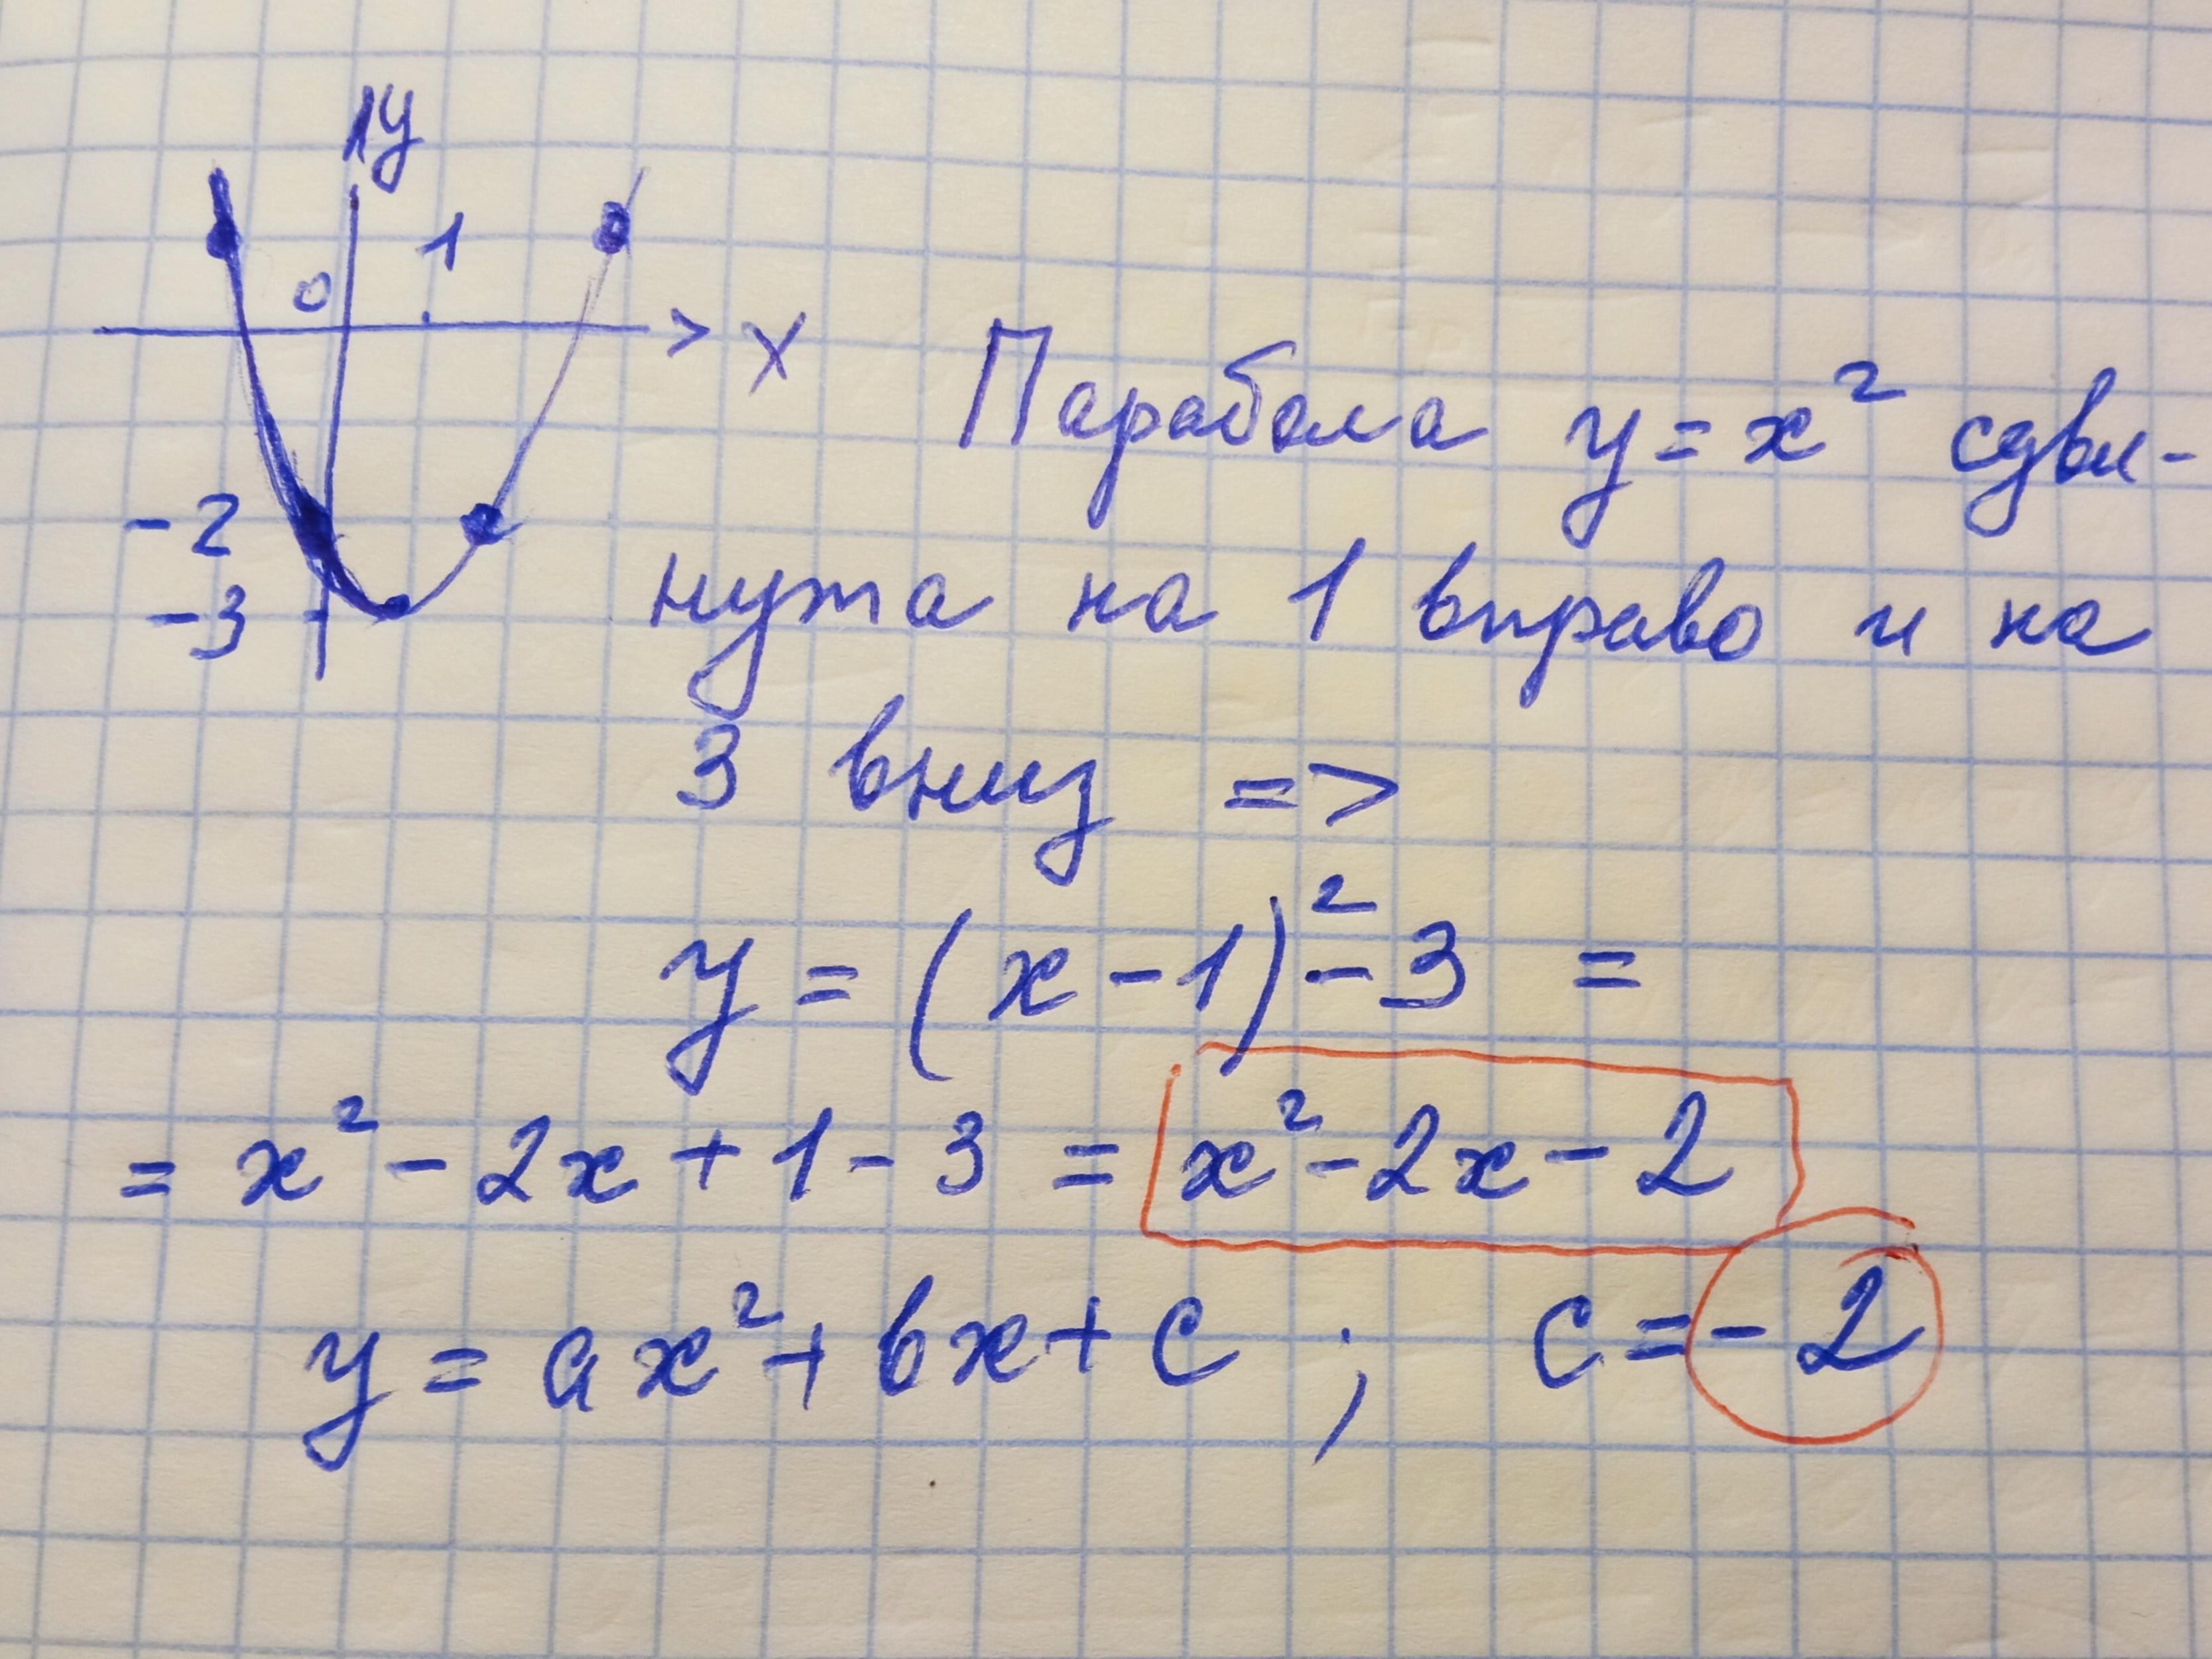 y
1
0
x
-2
-3
Парабола y = x² сдви-
нута на 1 вправо и на
3 вниз =>
y = (x - 1)² - 3 =
= x² - 2x + 1 - 3 = x² - 2x - 2
y = ax² + bx + c ; c = -2